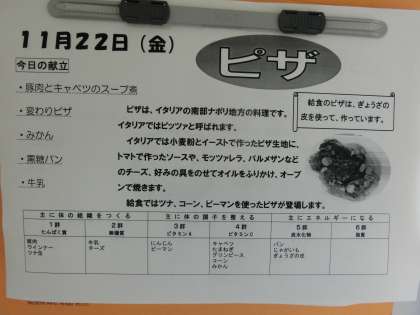 11月22日（金）
ピザ
今日の献立
・豚肉とキャベツのスープ煮
・変わりピザ
・みかん
・黒糖パン
・牛乳
給食のピザは、ぎょうざの
皮を使って、作っています。
ピザは、イタリアの南部ナポリ地方の料理です。
イタリアではピッツァと呼ばれます。
イタリアでは小麦粉とイーストで作ったピザ生地に、
トマトで作ったソースや、モッツァレラ、パルメザンなど
のチーズ、好みの具をのせてオイルをふりかけ、オーブ
ンで焼きます。
給食ではツナ、コーン、ピーマンを使ったピザが登場します。
主に体の組織をつくる 主に体の調子を整える 主にエネルギーになる
1群 2群 3群 4群 5群 6群
たんぱく質 無機質 ビタミンA ビタミンC 炭水化物 脂質
豚肉 牛乳 にんじん キャベツ パン
ウインナー チーズ ピーマン たまねぎ じゃがいも
ツナ缶 グリンピース ぎょうざの皮
コーン
みかん